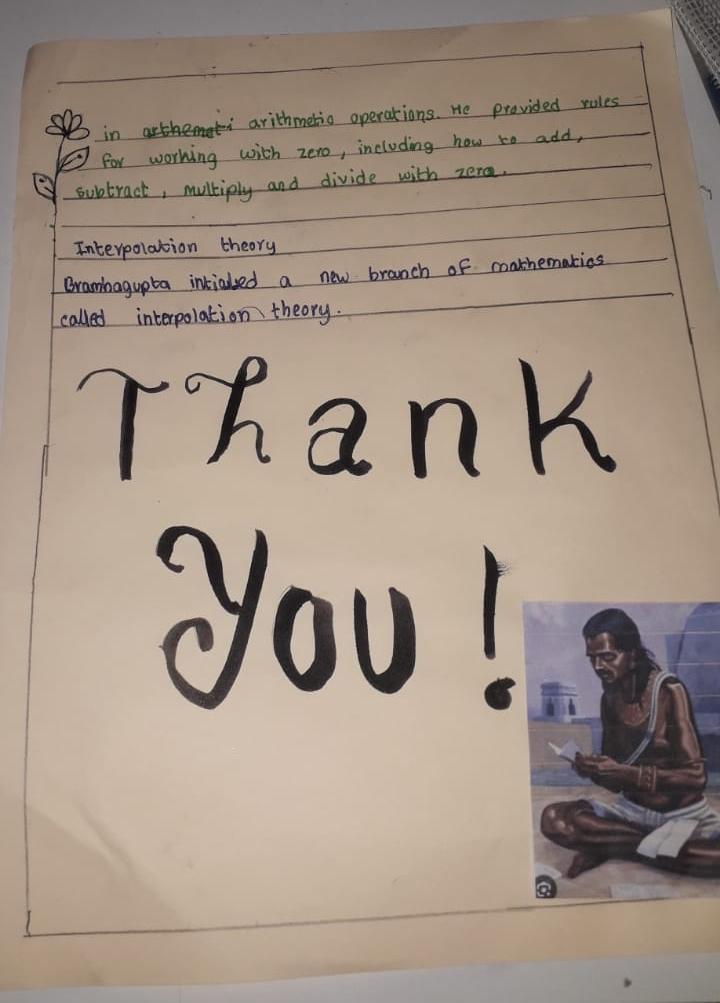 in arthemati arithmetic operations. He provided rules
for working with zero, including how to add,
subtract, multiply and divide with zero.
Interpolation theory
Bramhagupta intialed a new branch of mathematics
called interpolation theory.
Thank
You!